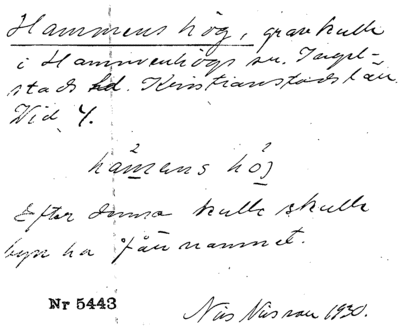 Hammens hög, gravkulle
i Hammenhögs sn. Ingel-
stads hd. Kristianstads län.
Wid 4.
hamens höj
Efter denna kulle skulle
byn ha fått namnet.
Nr 5443
Nils Nilsson 1930.